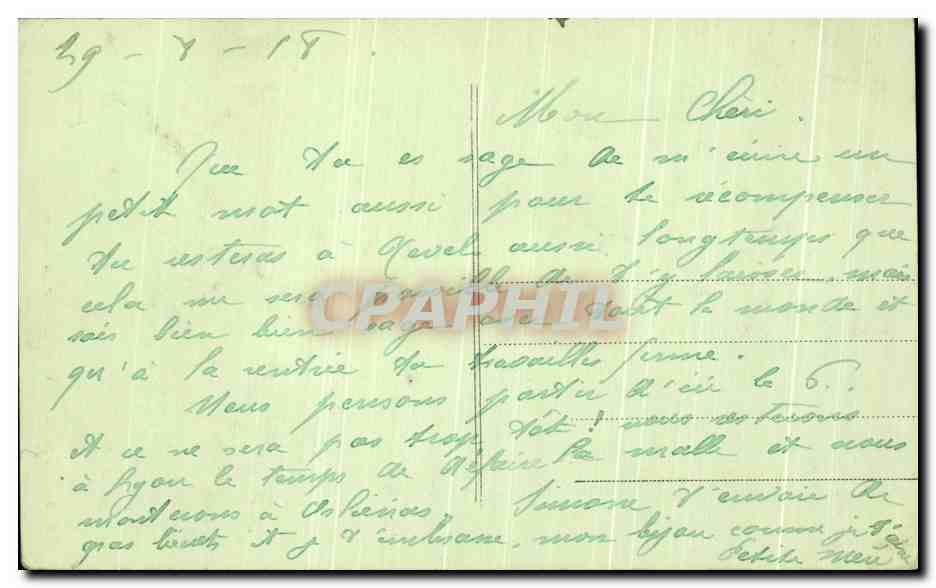 29 - 7 - 18.
Mon Chéri.
Que tu es sage de m'écrire un
petit mot aussi pour te récompenser
tu resteras à Revel aussi longtemps que
cela me sera possible de t'y laisser, mais
sois bien bien sage avec tout le monde et
qu'à la rentrée tu travailles ferme.
Nous pensons partir d'ici le 6.
Et ce ne sera pas trop tôt! nous resterons
à Lyon le temps de défaire la malle et nous
monterons à
Simone t'envoie de
gros baisers et je t'embrasse, mon bijou comme je t'
Petite
CPAPHIL